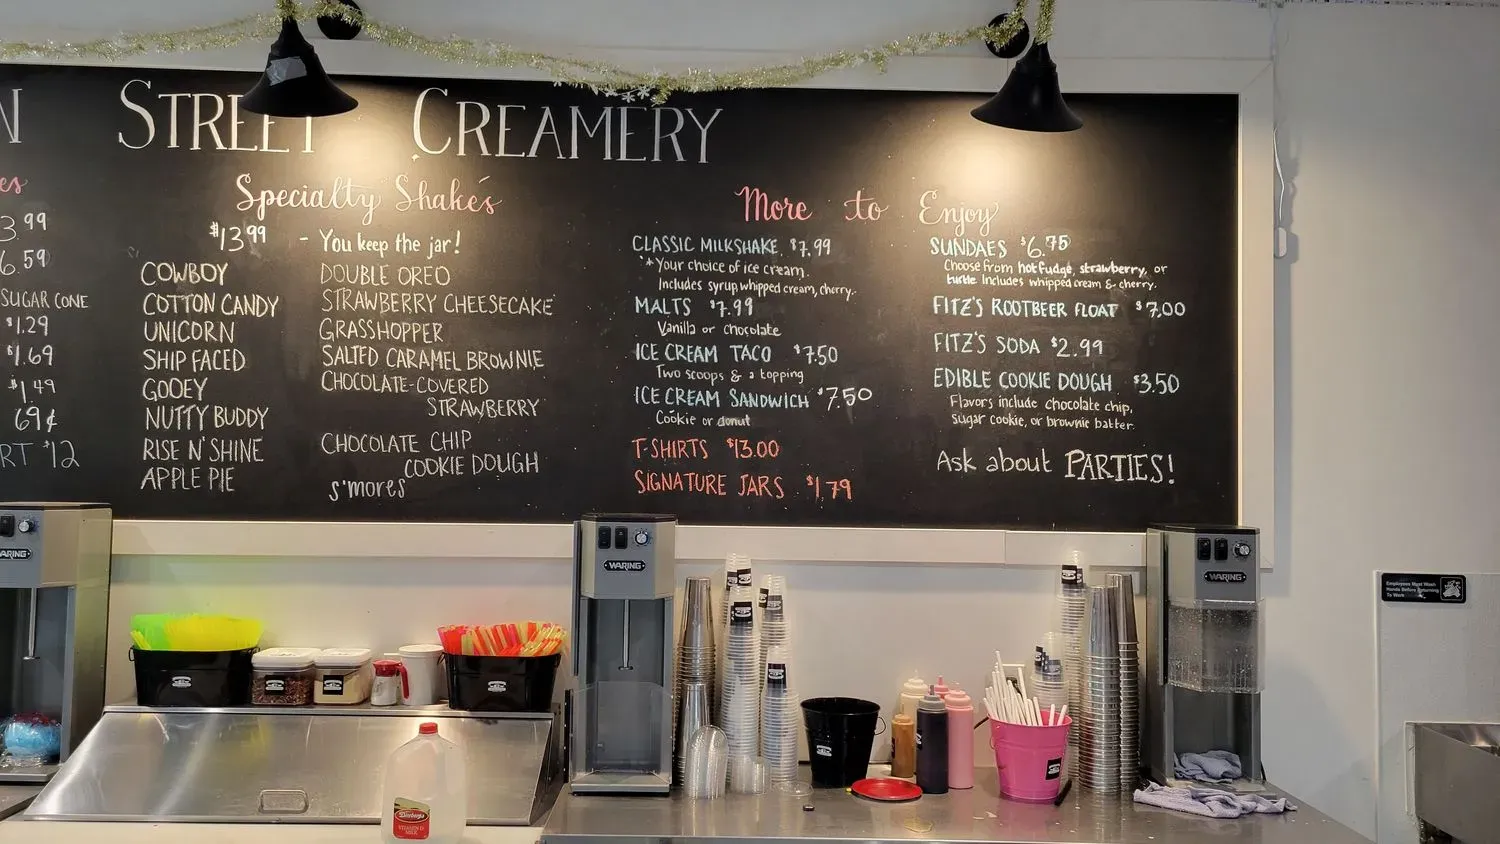 N STREET CREAMERY
es
3.99
6.59
SUGAR CONE
$1.29
$1.69
$1.49
69¢
RT $12
Specialty Shakes
$13.99 - You keep the jar!
COWBOY
COTTON CANDY
UNICORN
SHIP FACED
GOOEY
NUTTY BUDDY
RISE N' SHINE
APPLE PIE
DOUBLE OREO
STRAWBERRY CHEESECAKE
GRASSHOPPER
SALTED CARAMEL BROWNIE
CHOCOLATE-COVERED
STRAWBERRY
CHOCOLATE CHIP
COOKIE DOUGH
s'mores
More to Enjoy
CLASSIC MILKSHAKE $7.99
*Your choice of ice cream.
Includes syrup, whipped cream, cherry.
MALTS $7.99
Vanilla or chocolate
ICE CREAM TACO $7.50
Two scoops & a topping
ICE CREAM SANDWICH $7.50
Cookie or donut
T-SHIRTS $13.00
SIGNATURE JARS $1.79
SUNDAES $6.75
Choose from hot fudge, strawberry, or
turtle. Includes whipped cream & cherry.
FITZ'S ROOTBEER FLOAT $7.00
FITZ'S SODA $2.99
EDIBLE COOKIE DOUGH $3.50
Flavors include chocolate chip,
sugar cookie, or brownie batter.
Ask about PARTIES!
WARING
WARING
WARING
Employees Must Wash
Hands Before Returning
To Work
VITAMIN D
MILK